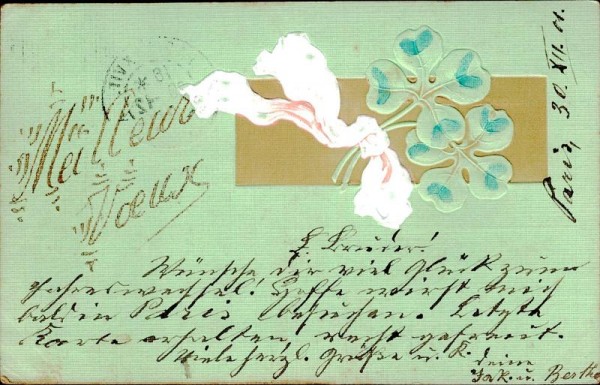 Meilleurs
Voeux
Paris, 30.XII.01.
L. Bruder!
Wünsche dir viel Glück zum
Jahreswechsel! Hoffe wirst mich
bald in Paris besuchen. Letzte
Karte erhalten, recht gefreut.
Viele herzl. Grüße u. K.
deine
Jak. u. Bertha